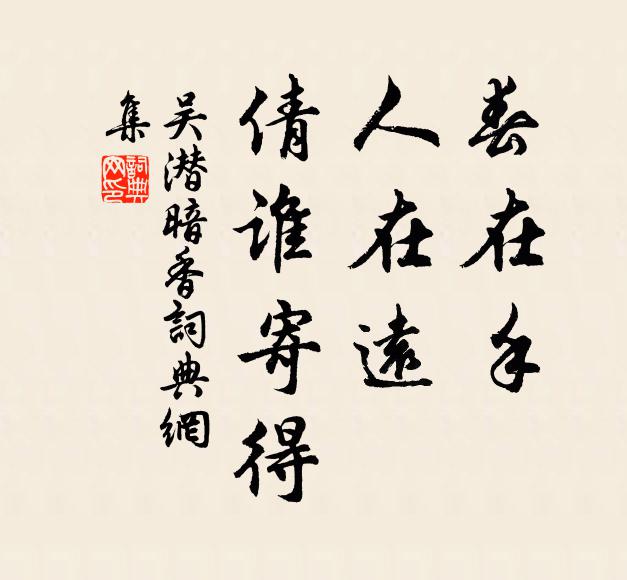 春在手
人在遠
倩谁寄得
吴潜暗香詞典網
集
詞典
网印